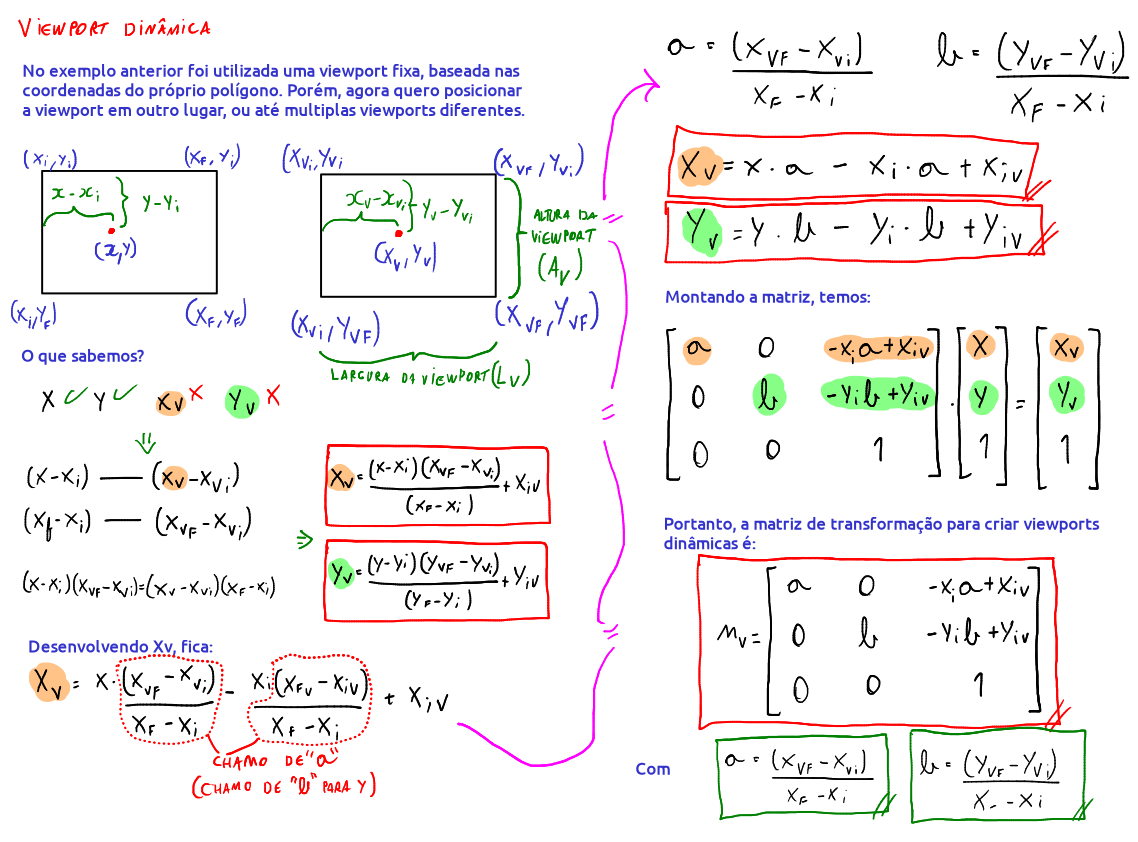 VIEWPORT DINÂMICA
No exemplo anterior foi utilizada uma viewport fixa, baseada nas
coordenadas do próprio polígono. Porém, agora quero posicionar
a viewport em outro lugar, ou até multiplas viewports diferentes.
(Xi, Yi) (XF, Yi)
x - xi } Y - Yi
(x, Y)
(Xi, YF) (XF, YF)
(XVi, YVi (XVF, YVi)
xv - xvi } Yv - Yvi
(Xv, Yv)
ALTURA DA
VIEWPORT
(AV)
(XVi, YVF) (XVF, YVF)
LARGURA DA VIEWPORT (LV)
O que sabemos?
X ✓ Y ✓ Xv X Yv X
⇓
(X - Xi) — (Xv - XVi)
(Xf - Xi) — (XVF - XVi)
(X - Xi)(XVF - XVi) = (XV - XVi)(XF - Xi)
⇒
Xv = (X - Xi)(XVF - XVi) / (XF - Xi) + Xiv
Yv = (Y - Yi)(YVF - YVi) / (YF - Yi) + Yiv
Desenvolvendo Xv, fica:
Xv = X · (XVF - XVi) / (XF - Xi) - Xi (XFv - Xiv) / (XF - Xi) + Xiv
CHAMO DE "a"
(CHAMO DE "b" PARA Y)
a = (XVF - XVi) / (XF - Xi) b = (YVF - YVi) / (XF - Xi)
Xv = x · a - Xi · a + Xiv
Yv = Y · b - Yi · b + Yiv
Montando a matriz, temos:
[ a 0 -Xia + Xiv ] [ X ] [ Xv ]
[ 0 b -Yib + Yiv ] · [ Y ] = [ Yv ]
[ 0 0 1 ] [ 1 ] [ 1 ]
Portanto, a matriz de transformação para criar viewports
dinâmicas é:
[ a 0 -Xia + Xiv ]
Mv = [ 0 b -Yib + Yiv ]
[ 0 0 1 ]
Com a = (XVF - XVi) / (XF - Xi) b = (YVF - YVi) / (X - Xi)